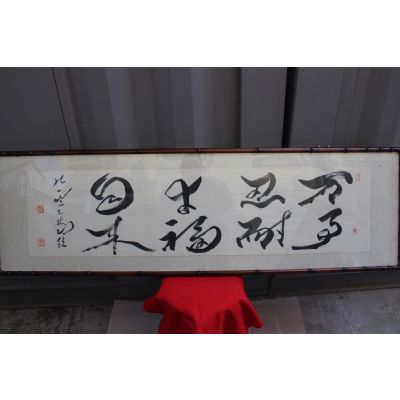 万事
忍耐
幸福
自来